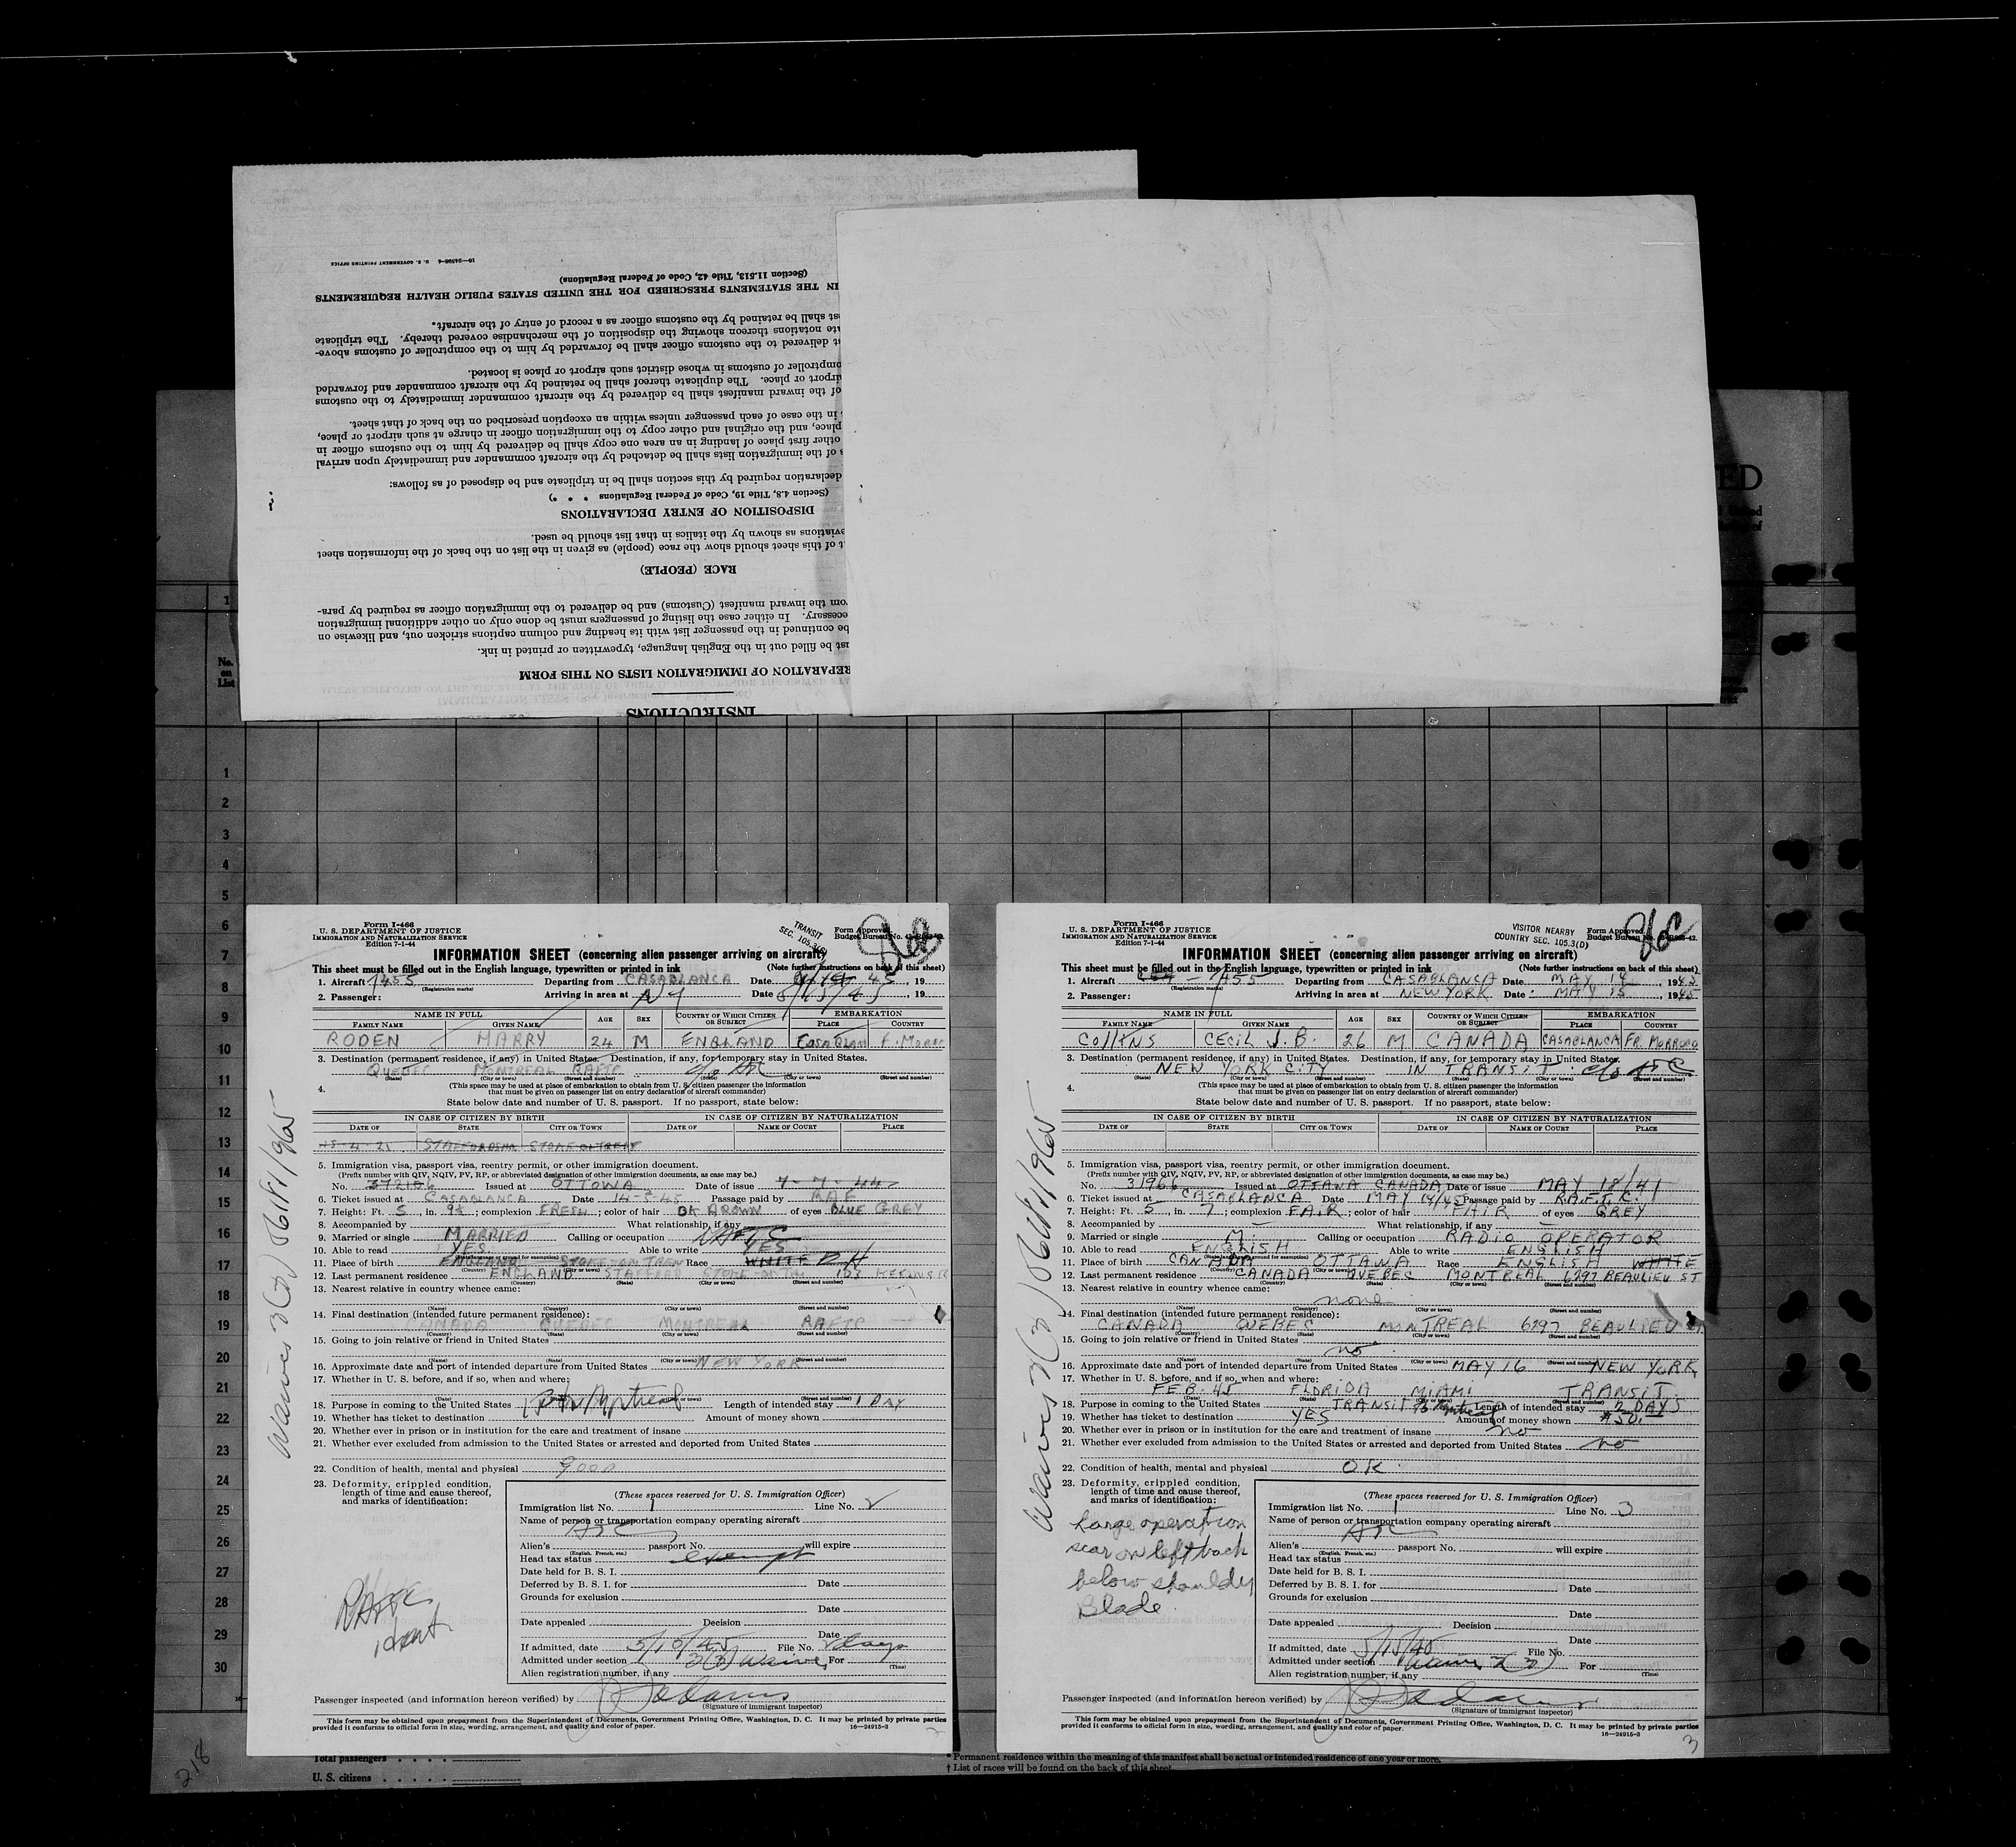 INSTRUCTIONS
REPARATION OF IMMIGRATION LISTS ON THIS FORM
ust be filled out in the English language, typewritten or printed in ink.
be continued in the passenger list with its heading and column captions stricken out, and likewise on
ecessary. In either case the listing of passengers must be done only on other additional immigration
om the inward manifest (Customs) and be delivered to the immigration officer as required by para-
RACE (PEOPLE)
t of this sheet should show the race (people) as given in the list on the back of the information sheet
eviations as shown by the italics in that list should be used.
DISPOSITION OF ENTRY DECLARATIONS
(Section 4.8, Title 19, Code of Federal Regulations * * *)
declaration required by this section shall be in triplicate and be disposed of as follows:
s of the immigration lists shall be detached by the aircraft commander and immediately upon arrival
other first place of landing in an area one copy shall be delivered by him to the customs officer in
place, and the original and other copy to the immigration officer in charge at such airport or place,
, in the case of each passenger unless within an exception prescribed on the back of that sheet.
of the inward manifest shall be delivered by the aircraft commander immediately to the customs
irport or place. The duplicate thereof shall be retained by the aircraft commander and forwarded
mptroller of customs in whose district such airport or place is located.
st delivered to the customs officer shall be forwarded by him to the comptroller of customs above-
ate notations thereon showing the disposition of the merchandise covered thereby. The triplicate
st shall be retained by the customs officer as a record of entry of the aircraft.
IN THE STATEMENTS PRESCRIBED FOR THE UNITED STATES PUBLIC HEALTH REQUIREMENTS
(Section 11.513, Title 42, Code of Federal Regulations)
16—24598-4 U. S. GOVERNMENT PRINTING OFFICE
ED
No. on List
1
2
3
4
5
6
7
8
9
10
11
12
13
14
15
16
17
18
19
20
21
22
23
24
25
26
27
28
29
30
Form I-466
U. S. DEPARTMENT OF JUSTICE
IMMIGRATION AND NATURALIZATION SERVICE
Edition 7-1-44
TRANSIT
SEC. 105.3(
Form Approved
Budget Bureau No. 43-
INFORMATION SHEET (concerning alien passenger arriving on aircraft)
This sheet must be filled out in the English language, typewritten or printed in ink (Note further instructions on back of this sheet)
1. Aircraft 1455 Departing from CASABLANCA Date 45, 19
(Registration marks)
2. Passenger: Arriving in area at N Y Date 5/15/45, 19
NAME IN FULL AGE SEX COUNTRY OF WHICH CITIZEN OR SUBJECT EMBARKATION
FAMILY NAME GIVEN NAME PLACE COUNTRY
RODEN HARRY 24 M ENGLAND CASABLAN F. MOROC
3. Destination (permanent residence, if any) in United States. Destination, if any, for temporary stay in United States.
QUEBEC MONTREAL RAFTC c/o ATC
(State) (City or town) (Street and number) (State) (City or town) (Street and number)
4. (This space may be used at place of embarkation to obtain from U. S. citizen passenger the information
that must be given on passenger list on entry declaration of aircraft commander)
State below date and number of U. S. passport. If no passport, state below:
IN CASE OF CITIZEN BY BIRTH IN CASE OF CITIZEN BY NATURALIZATION
DATE OF STATE CITY OR TOWN DATE OF NAME OF COURT PLACE
4-21 STAFFORDSHR STOKE ON TRENT
5. Immigration visa, passport visa, reentry permit, or other immigration document.
(Prefix number with QIV, NQIV, PV, RP, or abbreviated designation of other immigration documents, as case may be.)
No. 372186 Issued at OTTOWA Date of issue 7-7-44
6. Ticket issued at CASABLANCA Date 14-5-45 Passage paid by RAF
7. Height: Ft. 5, in. 9½; complexion FRESH; color of hair DK BROWN of eyes BLUE GREY
8. Accompanied by What relationship, if any
9. Married or single MARRIED Calling or occupation RAFTC
10. Able to read YES Able to write YES
11. Place of birth ENGLAND STOKE-ON-TREN Race WHITE
12. Last permanent residence ENGLAND STAFFORD STOKE-ON-TR 103
13. Nearest relative in country whence came:
(Name) (Country) (City or town) (Street and number)
14. Final destination (intended future permanent residence):
CANADA QUEBEC MONTREAL RAFTC
(Country) (State) (City or town) (Street and number)
15. Going to join relative or friend in United States
(Name) (State) (City or town) (Street and number)
16. Approximate date and port of intended departure from United States NEW YORK
17. Whether in U. S. before, and if so, when and where:
(Date) (State) (City or town) (Street and number)
18. Purpose in coming to the United States Length of intended stay 1 DAY
19. Whether has ticket to destination Amount of money shown
20. Whether ever in prison or in institution for the care and treatment of insane
21. Whether ever excluded from admission to the United States or arrested and deported from United States
22. Condition of health, mental and physical GOOD
23. Deformity, crippled condition, length of time and cause thereof, and marks of identification:
(These spaces reserved for U. S. Immigration Officer)
Immigration list No. 1 Line No. 2
Name of person or transportation company operating aircraft
ATC
Alien's passport No. will expire
(English, French, etc.)
Head tax status exempt
Date held for B. S. I.
Deferred by B. S. I. for Date
Grounds for exclusion
Date
Date appealed Decision
Date
If admitted, date 5/15/45 File No. 2 days
Admitted under section 3(3) waiver For
(Time)
Alien registration number, if any
Passenger inspected (and information hereon verified) by
(Signature of immigrant inspector)
This form may be obtained upon prepayment from the Superintendent of Documents, Government Printing Office, Washington, D. C. It may be printed by private parties
provided it conforms to official form in size, wording, arrangement, and quality and color of paper. 16—24915-3
2
Form I-466
U. S. DEPARTMENT OF JUSTICE
IMMIGRATION AND NATURALIZATION SERVICE
Edition 7-1-44
VISITOR NEARBY
COUNTRY SEC. 105.3(D)
Form Approved
Budget Bureau No. 43-
INFORMATION SHEET (concerning alien passenger arriving on aircraft)
This sheet must be filled out in the English language, typewritten or printed in ink (Note further instructions on back of this sheet)
1. Aircraft C54 - 1455 Departing from CASABLANCA Date MAY 14, 1945
(Registration marks)
2. Passenger: Arriving in area at NEW YORK Date MAY 15, 1945
NAME IN FULL AGE SEX COUNTRY OF WHICH CITIZEN OR SUBJECT EMBARKATION
FAMILY NAME GIVEN NAME PLACE COUNTRY
COLLINS CECIL J. B. 26 M CANADA CASABLANCA FR. MORROCO
3. Destination (permanent residence, if any) in United States. Destination, if any, for temporary stay in United States.
NEW YORK CITY IN TRANSIT c/o ATC
(City or town) (Street and number) (State) (City or town) (Street and number)
4. (This space may be used at place of embarkation to obtain from U. S. citizen passenger the information
that must be given on passenger list on entry declaration of aircraft commander)
State below date and number of U. S. passport. If no passport, state below:
IN CASE OF CITIZEN BY BIRTH IN CASE OF CITIZEN BY NATURALIZATION
DATE OF STATE CITY OR TOWN DATE OF NAME OF COURT PLACE
5. Immigration visa, passport visa, reentry permit, or other immigration document.
(Prefix number with QIV, NQIV, PV, RP, or abbreviated designation of other immigration documents, as case may be.)
No. 31966 Issued at OTTAWA CANADA Date of issue MAY 18/41
6. Ticket issued at CASABLANCA Date MAY 14/45 Passage paid by R.A.F.T.C.
7. Height: Ft. 5, in. 7; complexion FAIR; color of hair FAIR of eyes GREY
8. Accompanied by — What relationship, if any —
9. Married or single M. Calling or occupation RADIO OPERATOR
10. Able to read ENGLISH Able to write ENGLISH
11. Place of birth CANADA OTTAWA Race ENGLISH WHITE
12. Last permanent residence CANADA QUEBEC MONTREAL 6297 BEAULIEU ST
13. Nearest relative in country whence came:
none
(Name) (Country) (City or town) (Street and number)
14. Final destination (intended future permanent residence):
CANADA QUEBEC MONTREAL 6297 BEAULIEU ST
(Country) (State) (City or town) (Street and number)
15. Going to join relative or friend in United States
no
(Name) (State) (City or town) (Street and number)
16. Approximate date and port of intended departure from United States MAY 16 NEW YORK
17. Whether in U. S. before, and if so, when and where:
FEB. 45 FLORIDA MIAMI TRANSIT
(Date) (State) (City or town) (Street and number)
18. Purpose in coming to the United States TRANSIT to Montreal Length of intended stay 2 DAYS
19. Whether has ticket to destination YES Amount of money shown $50.
20. Whether ever in prison or in institution for the care and treatment of insane no
21. Whether ever excluded from admission to the United States or arrested and deported from United States no
22. Condition of health, mental and physical OK
23. Deformity, crippled condition, length of time and cause thereof, and marks of identification:
Large operation
scar on left back
below shoulder
Blade.
(These spaces reserved for U. S. Immigration Officer)
Immigration list No. 1 Line No. 3
Name of person or transportation company operating aircraft
ATC
Alien's passport No. will expire
(English, French, etc.)
Head tax status
Date held for B. S. I.
Deferred by B. S. I. for Date
Grounds for exclusion
Date
Date appealed Decision
Date
If admitted, date 5/15/45 File No.
Admitted under section waiver For
(Time)
Alien registration number, if any
Passenger inspected (and information hereon verified) by
(Signature of immigrant inspector)
This form may be obtained upon prepayment from the Superintendent of Documents, Government Printing Office, Washington, D. C. It may be printed by private parties
provided it conforms to official form in size, wording, arrangement, and quality and color of paper. 16—24915-3
3
Total passengers
U. S. citizens
* Permanent residence within the meaning of this manifest shall be actual or intended residence of one year or more.
† List of races will be found on the back of this sheet.
218